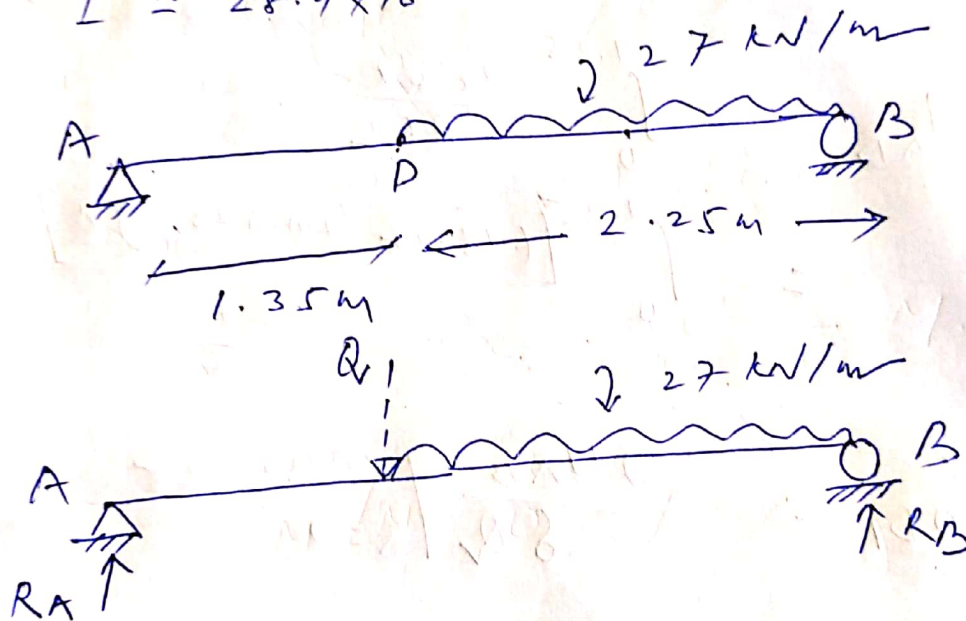 27 kN/m
A
B
D
2.25m
1.35m
Q
27 kN/m
A
B
RA
RB